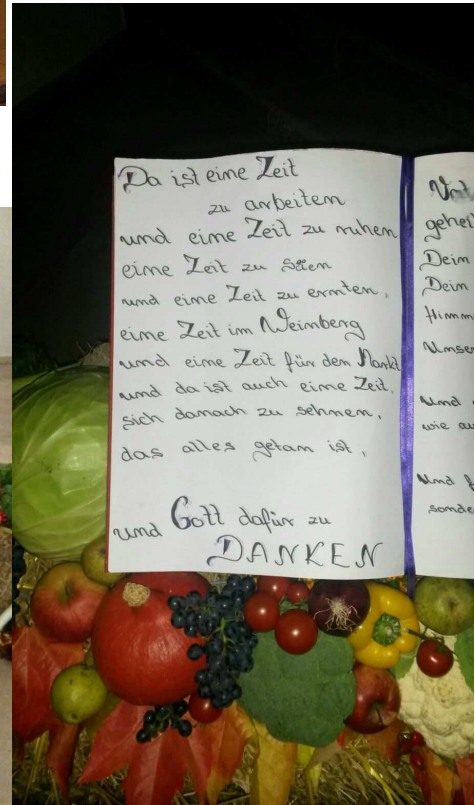 Da ist eine Zeit
zu arbeiten
und eine Zeit zu ruhen
eine Zeit zu Säen
und eine Zeit zu ernten,
eine Zeit im Weinberg
und eine Zeit für den Markt
und da ist auch eine Zeit,
sich danach zu sehnen,
das alles getan ist,
und Gott dafür zu
DANKEN
gehei
Dein
Dein
Himm
Unser
Und
wie au
Und f
sonde